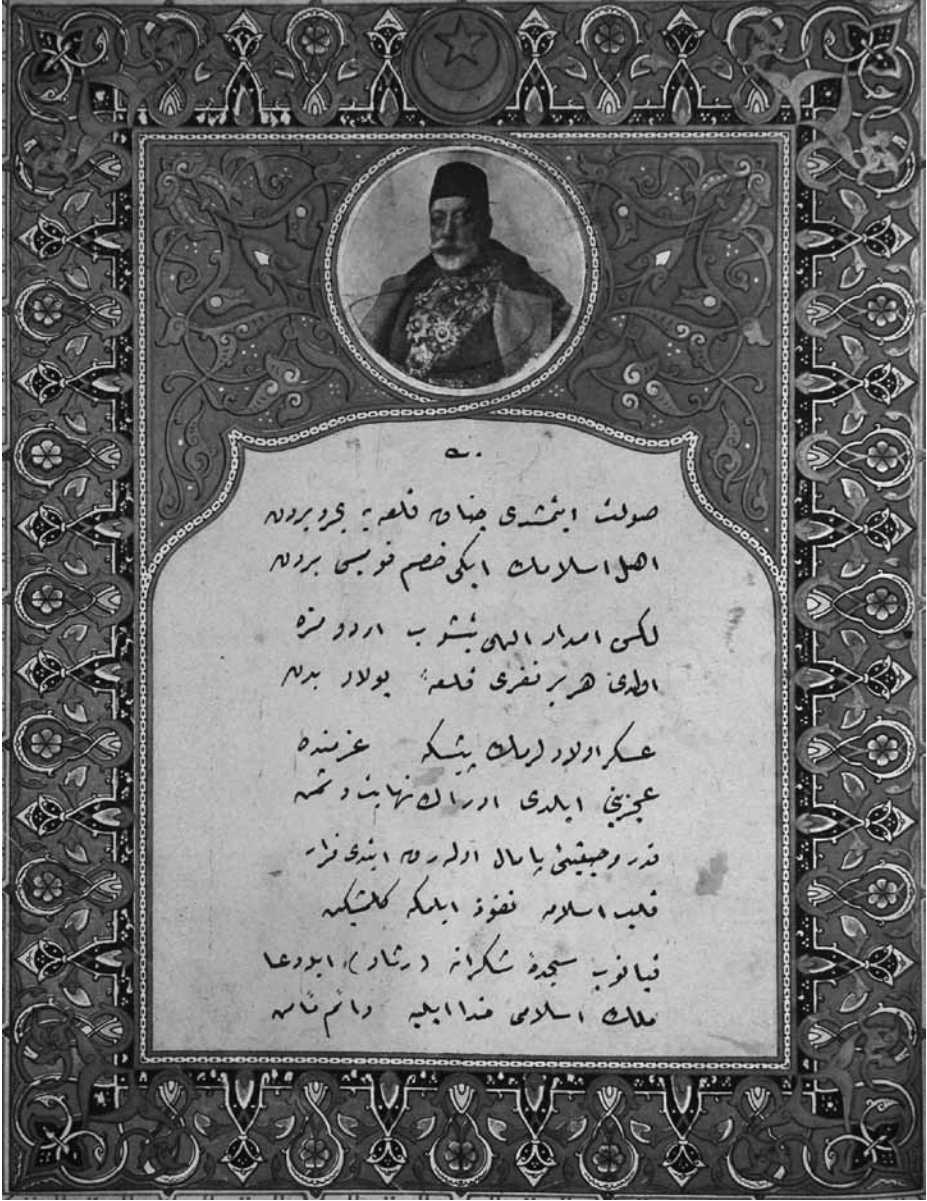 صولت ایتمشدی چناق قلعه یه بحر و بردن
اهل اسلامك ایكی خصم قویسی بردن
لكن امداد الهی یتشوب اردومزه
اولدی هر بر نفری قلعهٔ پولاد بدن
عسكر اولادلرمك پیشكه عزمنده
عجزینی ایلدی ادراك نهایت دشمن
قدر و حیثیتی پامال اوله رق ایتدی فرار
قلب اسلامه نفوذ ایلمكه كلمشكن
قپانوب سجدهٔ شكرانه (رشاد) ایلر دعا
ملك اسلامی خدا ایلیه دائم مأمن